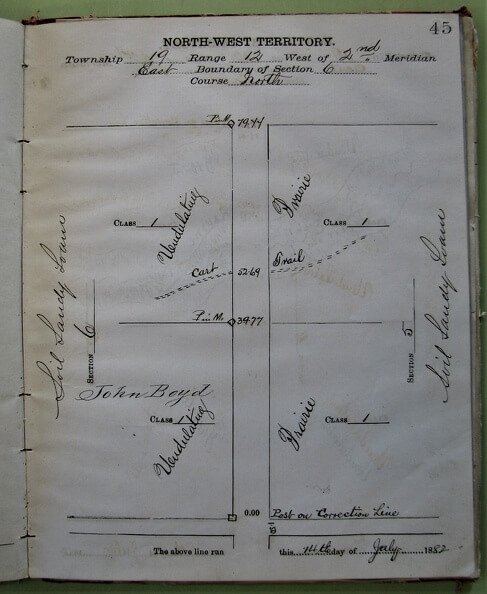 45
NORTH-WEST TERRITORY.
Township 19 Range 12 West of 2nd Meridian
East Boundary of Section 6
Course North
P in M. 79.44
Undulating Prairie
CLASS 1 CLASS 1
Cart 52.69 Trail
Soil Sandy Loam
SECTION 6
P in M. 39.77
SECTION 5
Soil Sandy Loam
John Boyd
CLASS 1 CLASS 1
Undulating Prairie
0.00 Post on Correction Line
The above line run this 14th day of July 1882